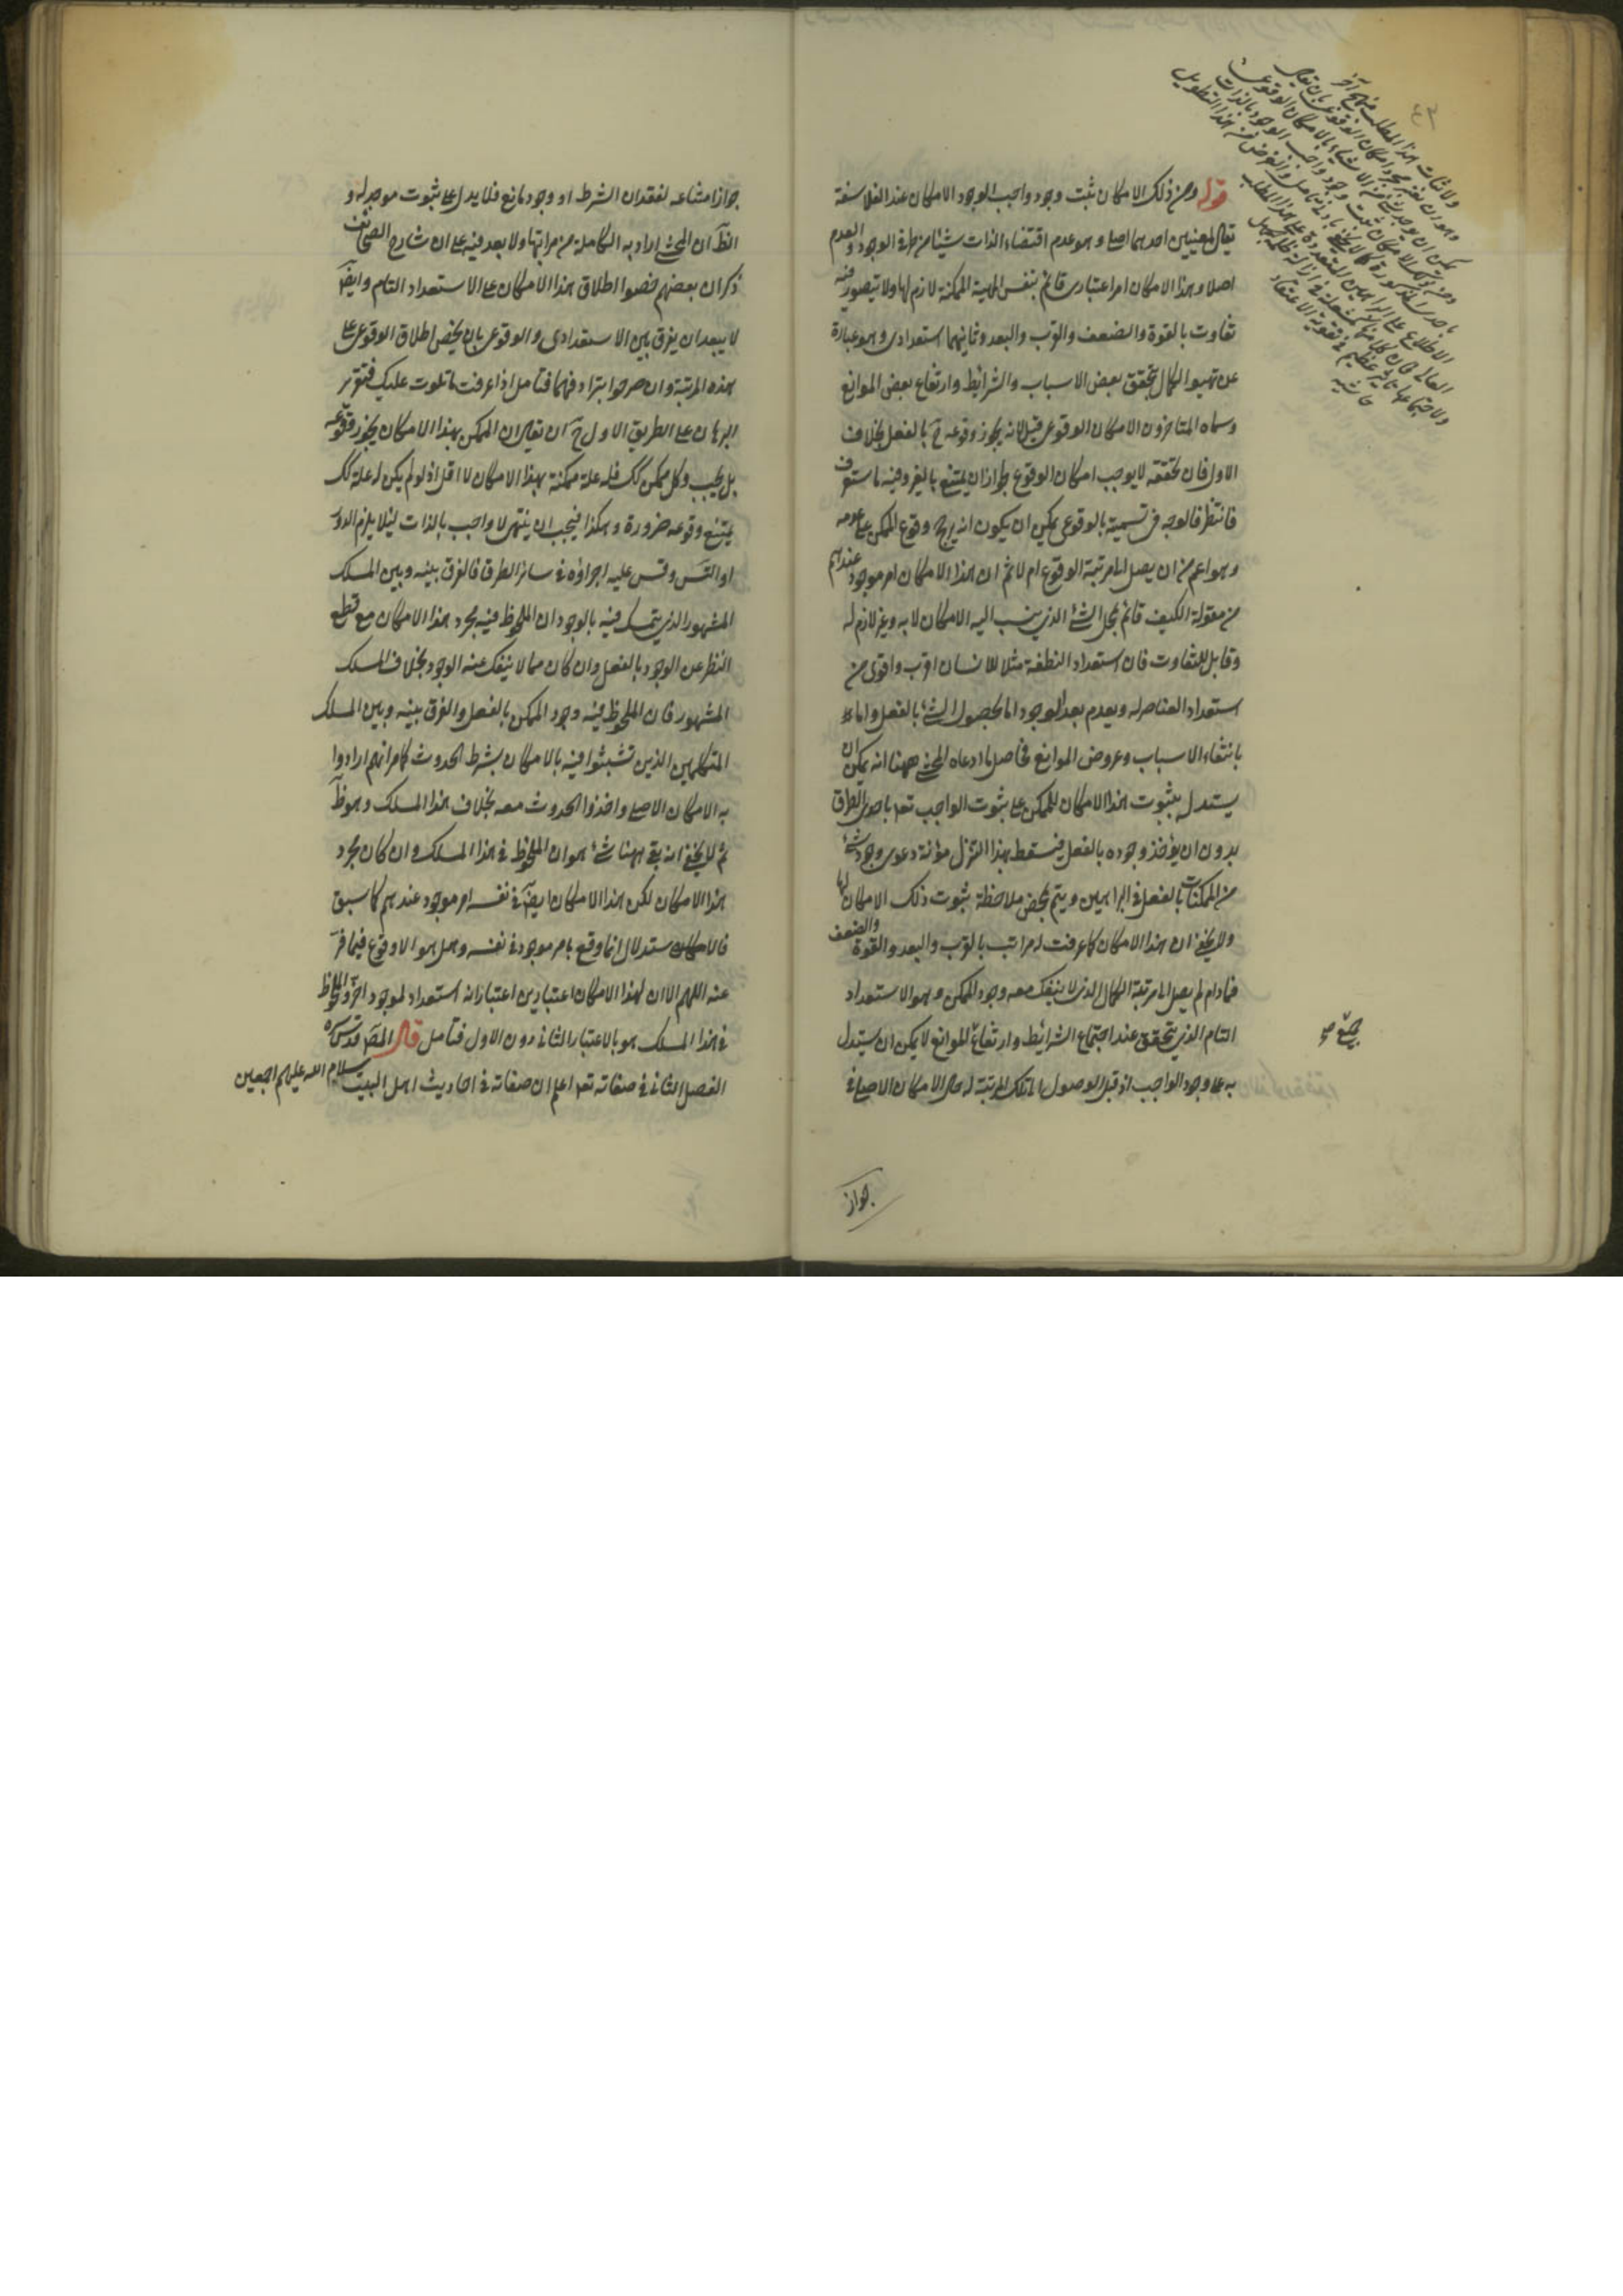 قوله ومن ذلك الامكان ثبت وجود واجب الوجود الامكان عند الفلاسفة
يقال لمعنيين احدهما اصلي وهو عدم اقتضاء الذات شيئا من طرفي الوجود والعدم
اصلا وهذا الامكان امر اعتباري قائم بنفس المهية الممكنة لازم لها ولا يتصور فيه
تفاوت بالقوة والضعف والقرب والبعد وثانيهما استعدادي وهو عبارة
عن تهيؤ الكمال بتحقق بعض الاسباب والشرائط وارتفاع بعض الموانع
وسماه المتاخرون الامكان الوقوعي قيل لانه يجوز وقوعه ح بالفعل بخلاف
الاول فان تحققه لا يوجب امكان الوقوع لجواز ان يمتنع بالغير وفيه ما ستعرف
فانتظر فالوجه في تسميته بالوقوعي يمكن ان يكون انه يرجح وقوع الممكن على عدمه
وهو اعم من ان يصل الى مرتبة الوقوع ام لا ثم ان هذا الامكان امر موجود عندهم
من مقولة الكيف قائم بمحل الشئ الذي ينسب اليه الامكان لا به وغير لازم له
وقابل للتفاوت فان استعداد النطفة مثلا للانسان اقرب واقوى من
استعداد العناصر له ويعدم بعد الوجود اما بحصول الشئ بالفعل واما
بانتفاء الاسباب وعروض الموانع فحاصل ما ادعاه المحشي ههنا انه يمكن ان
يستدل بثبوت هذا الامكان للممكن على ثبوت الواجب تعه باحدى الطرق
بدون ان يؤخذ وجوده بالفعل فيسقط بهذا التنزل مؤنة دعوى وجود شئ
من الممكنات بالفعل في البراهين ويتم بمحض ملاحظة ثبوت ذلك الامكان لها
ولا يخفى ان هذا الامكان كما عرفت له مراتب بالقرب والبعد والقوة والضعف
فما دام لم يصل الى مرتبة الكمال الذي لا ينفك معه وجود الممكن وهو الاستعداد
التام الذي يتحقق عند اجتماع الشرائط وارتفاع الموانع لا يمكن ان يستدل
به على وجود الواجب اذ قبل الوصول الى تلك المرتبة له حال الامكان الاصلي في
جواز
جواز امتناعه لفقدان الشرط او وجود مانع فلا يدل على ثبوت موجد له و
الظ ان المحشي اراد به الكاملة من مراتبها ولا بعد فيه على ان شارح الصحائف
ذكر ان بعضهم خصوا اطلاق هذا الامكان على الاستعداد التام وايض
لا يبعد ان يفرق بين الاستعدادي والوقوعي بان يخص اطلاق الوقوعي على
هذه المرتبة وان صرحوا بترادفهما فتامل اذا عرفت ما تلوت عليك فتقرير
البرهان على الطريق الاول ح ان يقال ان الممكن بهذا الامكان يجوز وقوعه
بل يجب وكل ممكن كك فله علة ممكنة بهذا الامكان لا اقل اذ لو لم يكن له علة كك
يمتنع وقوعه ضرورة وهكذا فيجب ان ينتهي لا واجب بالذات لئلا يلزم الدور
او التس وقس عليه اجراؤه في سائر الطرق فالفرق بينه وبين المسلك
المشهور الذي يتمسك فيه بالوجود ان الملحوظ فيه مجرد هذا الامكان مع قطع
النظر عن الوجود بالفعل وان كان مما لا ينفك عنه الوجود بخلاف المسلك
المشهور فان الملحوظ فيه وجود الممكن بالفعل والفرق بينه وبين المسلك
المتكلمين الذين تشبثوا فيه بالامكان بشرط الحدوث كما مر انهم ارادوا
به الامكان الاصلي واخذوا الحدوث معه بخلاف هذا المسلك وهو ظ
ثم لا يخفى انه بقي ههنا شئ هو ان الملحوظ في هذا المسلك وان كان مجرد
هذا الامكان لكن هذا الامكان ايض في نفسه امر موجود عندهم كما سبق
فالاستدلال انما وقع بامر موجود في نفسه وهل هو الا وقوع فيما فر
عنه اللهم الا ان لهذا الامكان اعتبارين اعتبار انه استعداد لموجود اخر والملحوظ
في هذا المسلك هو بالاعتبار الثاني دون الاول فتامل قال المص قدس سره
الفصل الثاني في صفاته تعه اعلم ان صفاته في احاديث اهل البيت سلام الله عليهم اجمعين